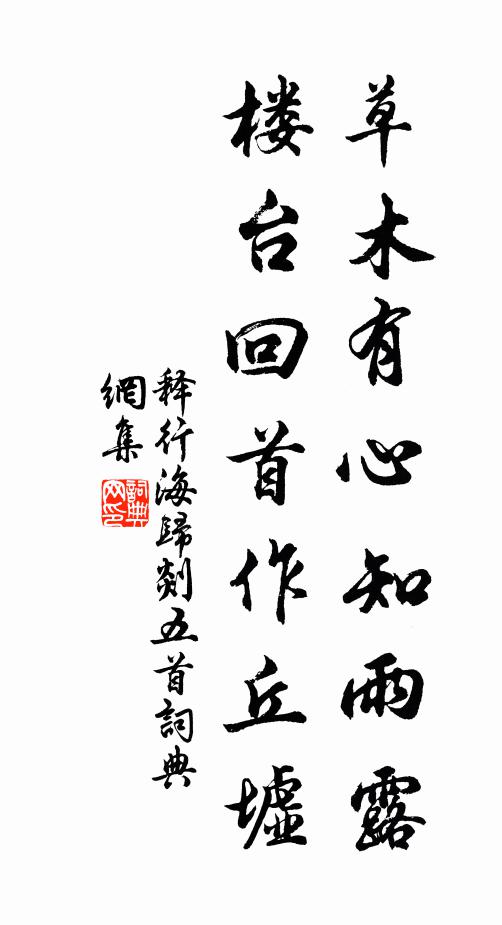 草木有心知雨露
楼台回首作丘墟
释行海歸剡五首詞典
網集
詞典
网印